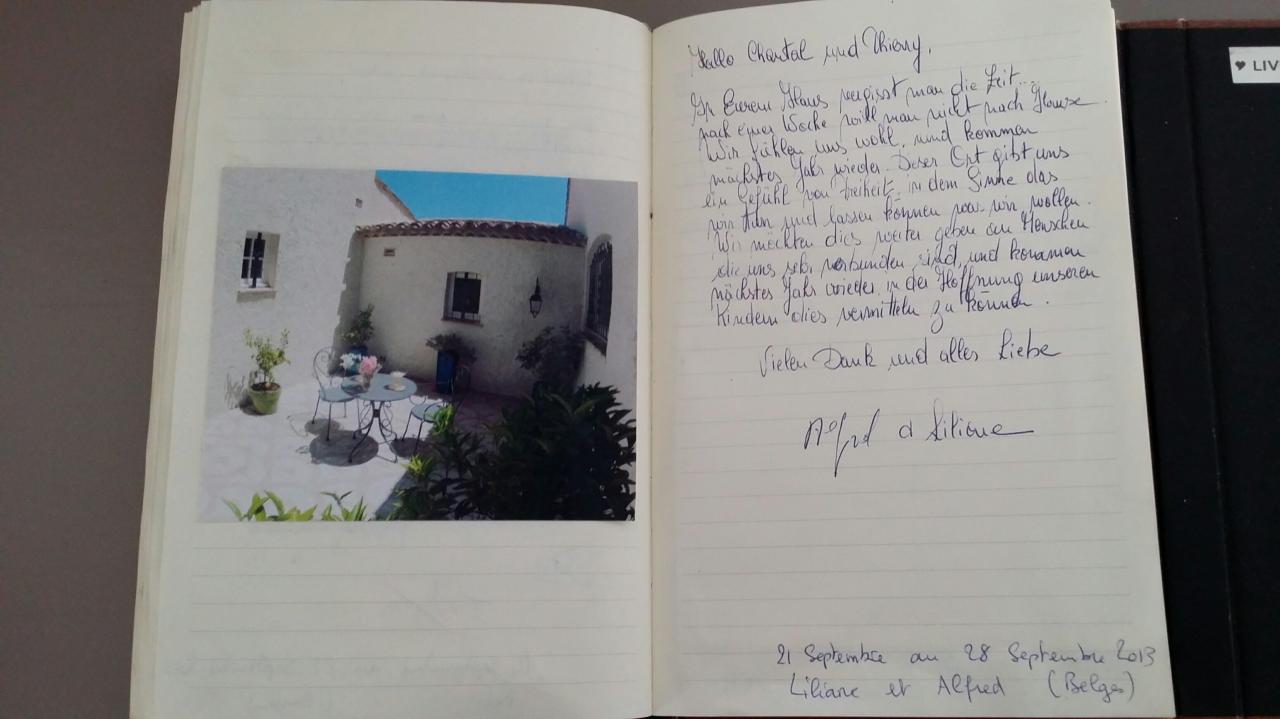 Hallo Chantal und Thierry,
In Eurem Haus vergisst man die Zeit...
nach einer Woche will man nicht nach Hause.
Wir fühlen uns wohl, und kommen
nächstes Jahr wieder. Dieser Ort gibt uns
ein Gefühl von Freiheit, in dem Sinne das
wir tun und lassen können was wir wollen.
Wir möchten dies weiter geben an Menschen
die uns sehr verbunden sind, und kommen
nächstes Jahr wieder, in der Hoffnung unseren
Kindern dies vermitteln zu können.
Vielen Dank und alles Liebe
Alfred & Liliane
21 Septembre au 28 Septembre 2013
Liliane et Alfred (Belges)
♥ LIV